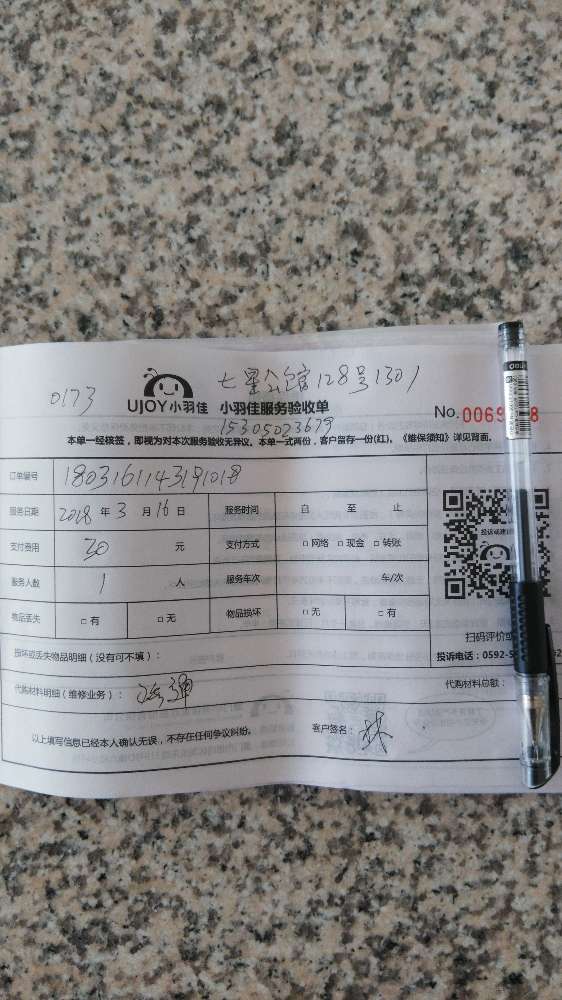 0173
七星公馆128号1301
UJOY小羽佳 小羽佳服务验收单
15305023679
No.0069
本单一经核签，即视为对本次服务验收无异议。本单一式两份，客户留存一份(红)。《维保须知》详见背面。
订单编号 1803161143191018
服务日期 2018 年 3 月 16 日 服务时间 自 至 止
支付费用 30 元 支付方式 □ 网络 □ 现金 □ 转账
服务人数 1 人 服务车次 车/次
物品丢失 □ 有 □ 无 物品损坏 □ 无 □ 有
扫码评价或
投诉电话：0592-5
损坏或丢失物品明细（没有可不填）：
代购材料明细（维修业务）： 代购材料总额：
以上填写信息已经本人确认无误，不存在任何争议纠纷。 客户签名： 林